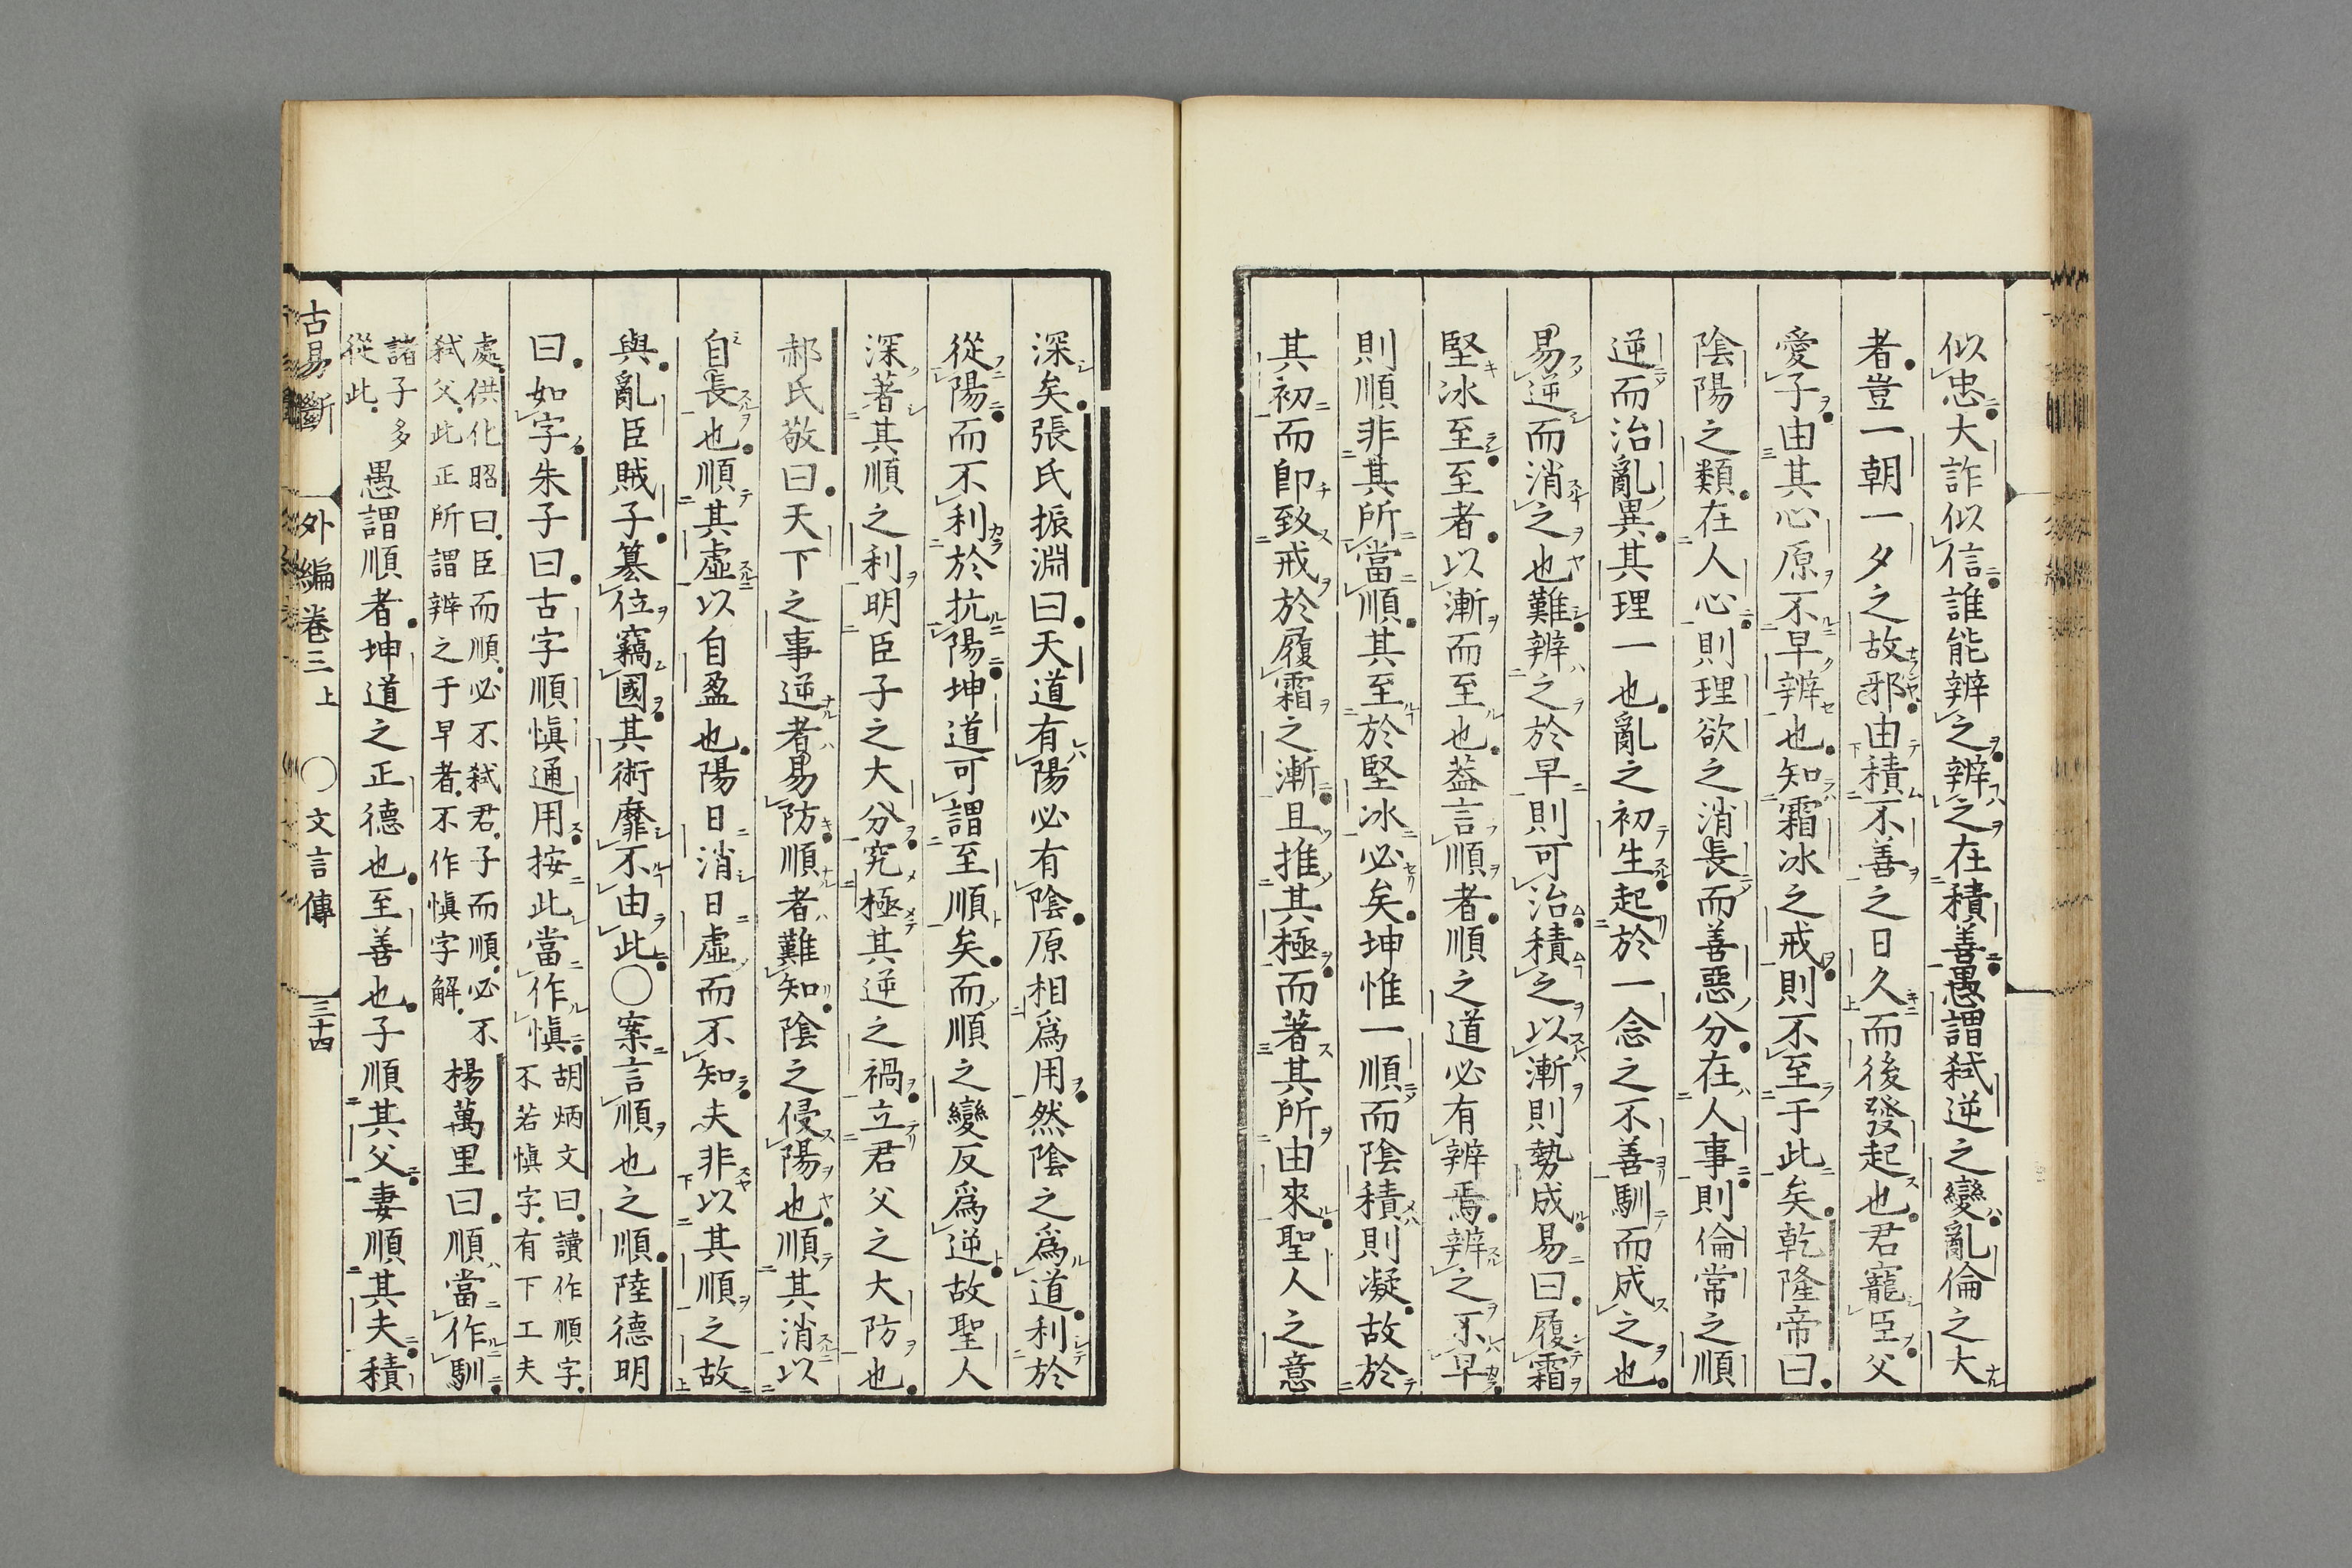 似忠大詐似信誰能辨之辨之在積善愚謂弑逆之變亂倫之大
者豈一朝一夕之故邪由積不善之日久而後發起也君寵臣父
愛子由其心原不早辨也知霜冰之戒則不至于此矣乾隆帝曰
陰陽之類在人心則理欲之消長而善惡分在人事則倫常之順
逆而治亂異其理一也亂之初生起於一念之不善馴而成之也
易逆而消之也難辨之於早則可治積之以漸則勢成易曰履霜
堅冰至至者以漸而至也葢言順者順之道必有辨焉辨之不早
則順非其所當順其至於堅冰必矣坤惟一順而陰積則凝故於
其初而卽致戒於履霜之漸且推其極而著其所由來聖人之意
深矣張氏振淵曰天道有陽必有陰原相爲用然陰之爲道利於
從陽而不利於抗陽坤道可謂至順矣而順之變反爲逆故聖人
深著其順之利明臣子之大分究極其逆之禍立君父之大防也
郝氏敬曰天下之事逆者易防順者難知陰之侵陽也順其消以
自長也順其虛以自盈也陽日消日虛而不知夫非以其順之故
與亂臣賊子簒位竊國其術靡不由此〇案言順也之順陸德明
曰如字朱子曰古字順愼通用按此當作愼胡炳文曰讀作順字
不若愼字有下工夫
處供化昭曰臣而順必不弑君子而順必不
弑父此正所謂辨之于早者不作愼字解楊萬里曰順當作馴
諸子多
從此愚謂順者坤道之正德也至善也子順其父妻順其夫積
古易斷 外編卷三上 〇文言傳 三十四